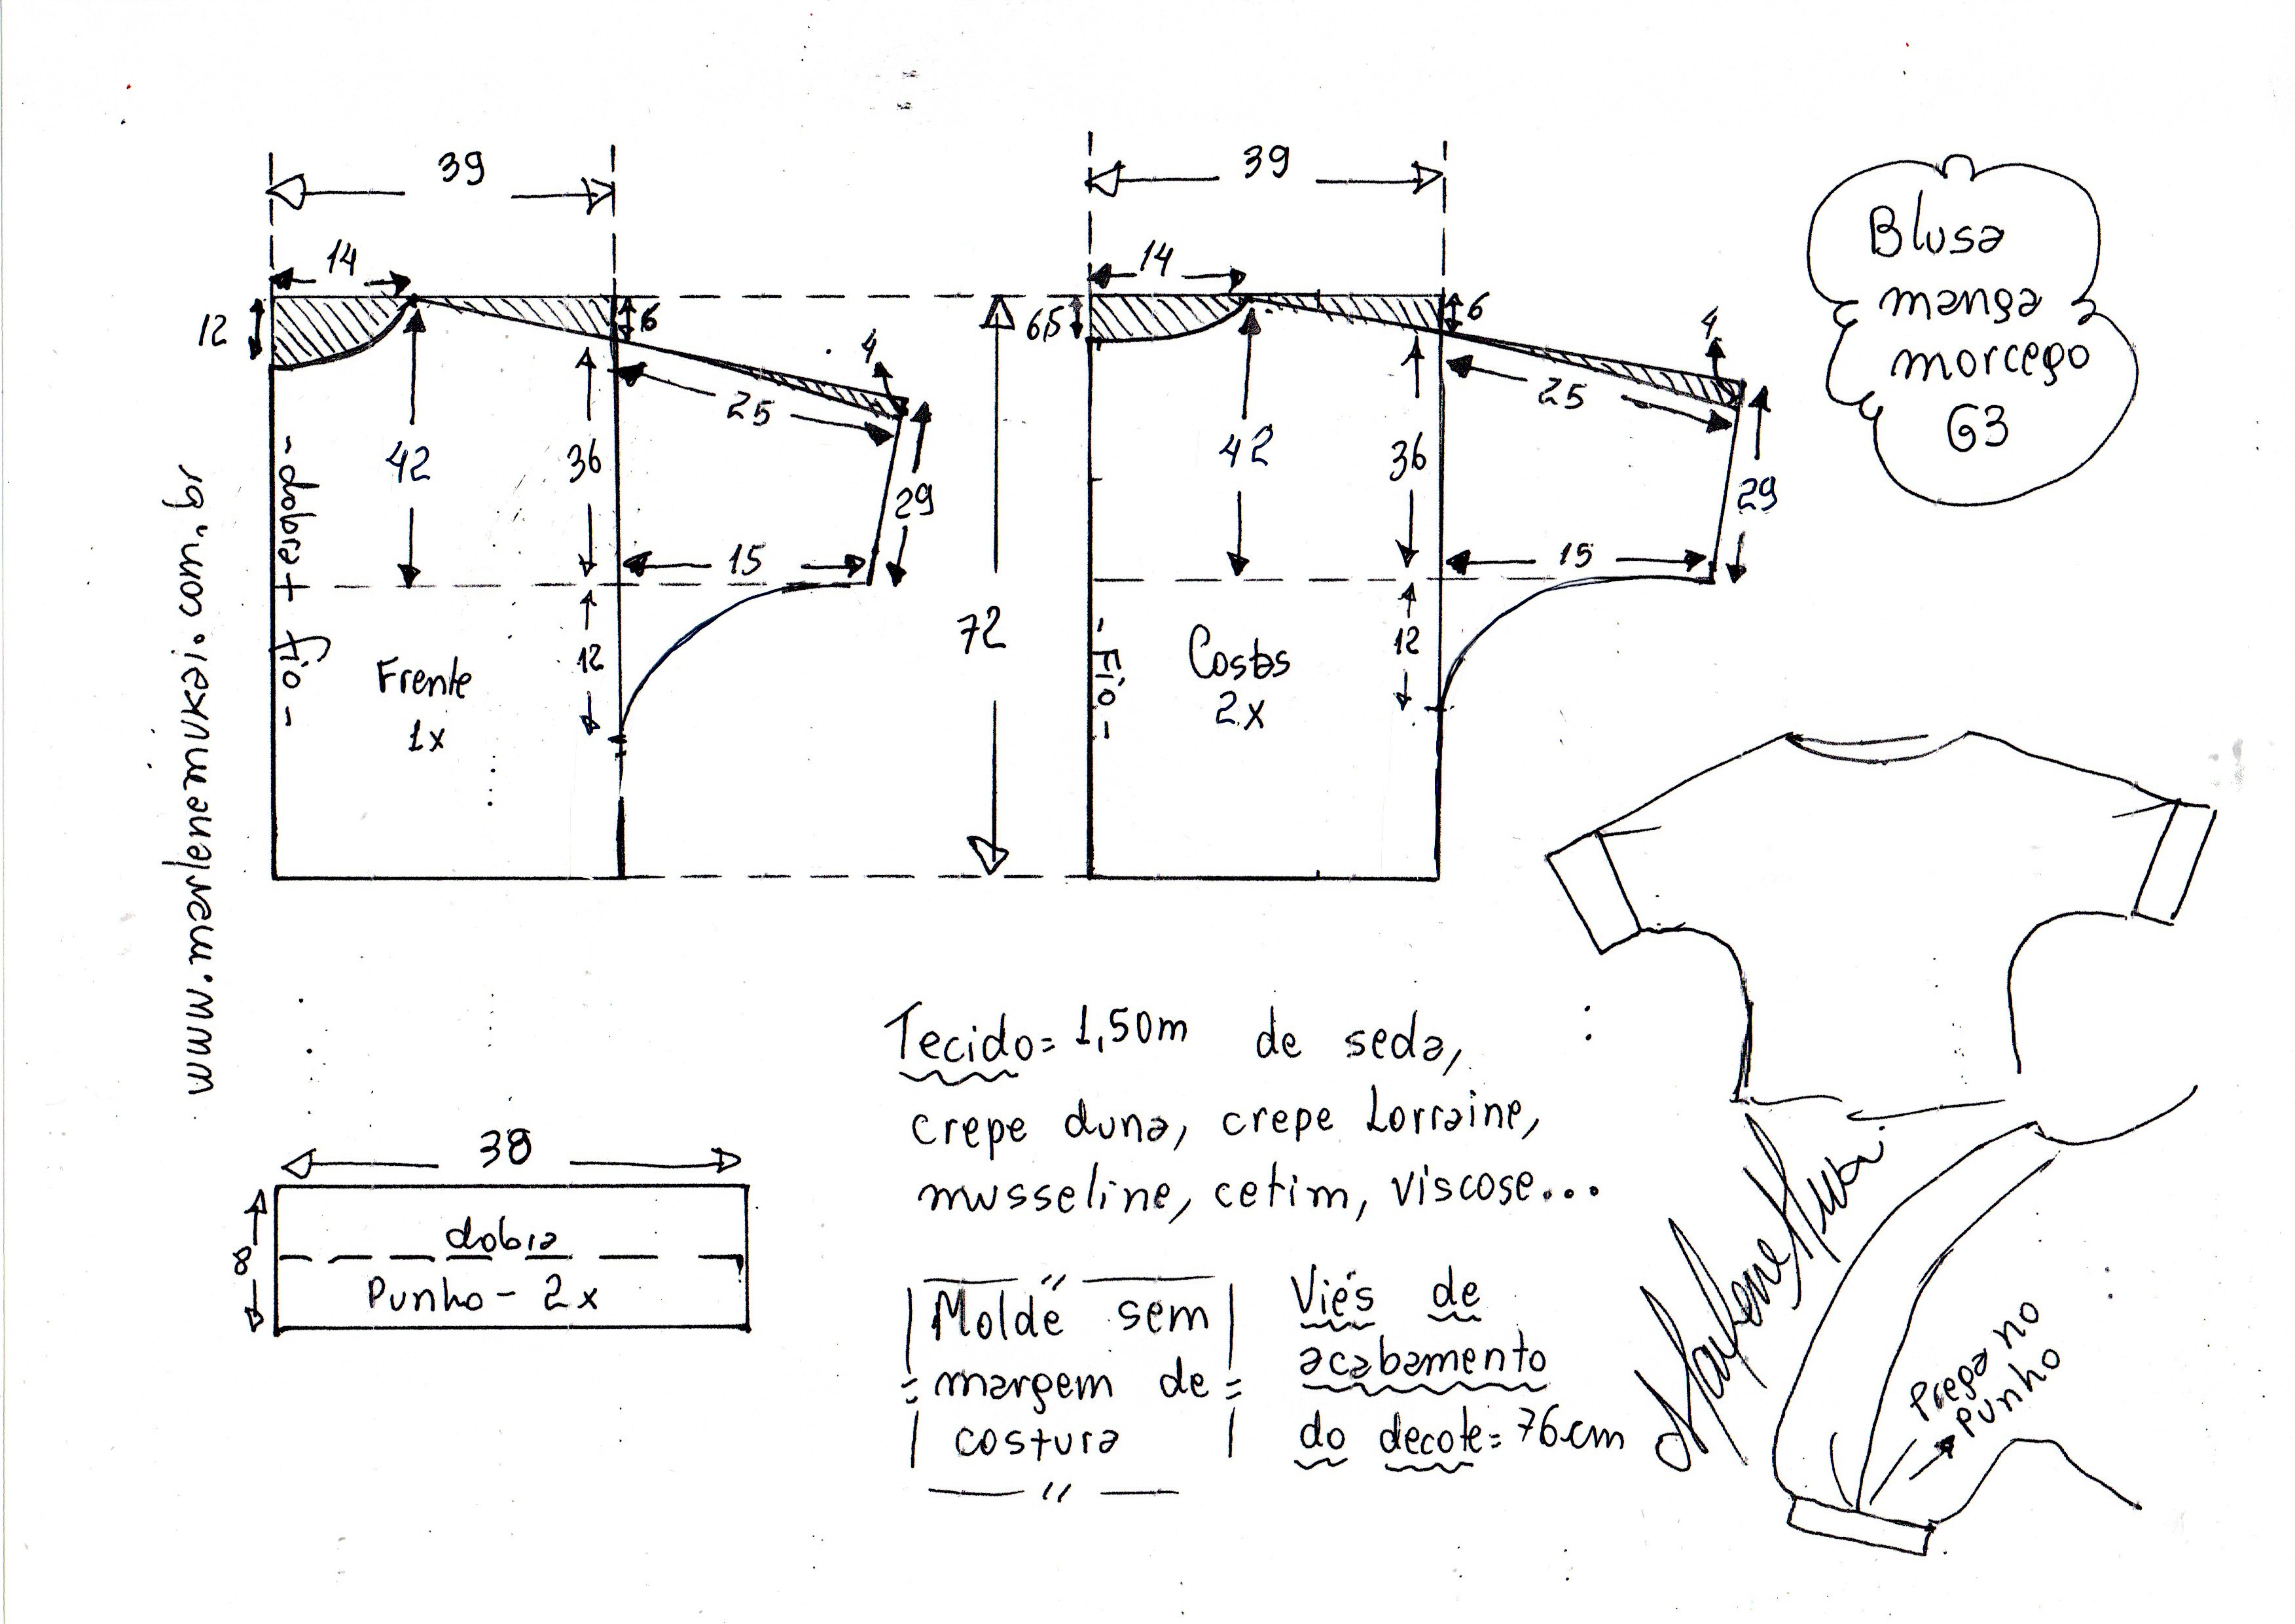 39
14
12
6
4
25
42
36
29
15
12
- dobra + fio -
Frente
1x
72
39
14
6,5
6
4
25
42
36
29
15
12
- Fio -
Costas
2x
Blusa
manga
morcego
G3
www.marlenemukai.com.br
38
8
dobra
Punho - 2x
Tecido = 1,50m de seda,
crepe duna, crepe Lorraine,
musseline, cetim, viscose...
Molde sem
margem de
costura
Viés de
acabamento
do decote = 76cm
Marlene Mukai
Prega no
Punho